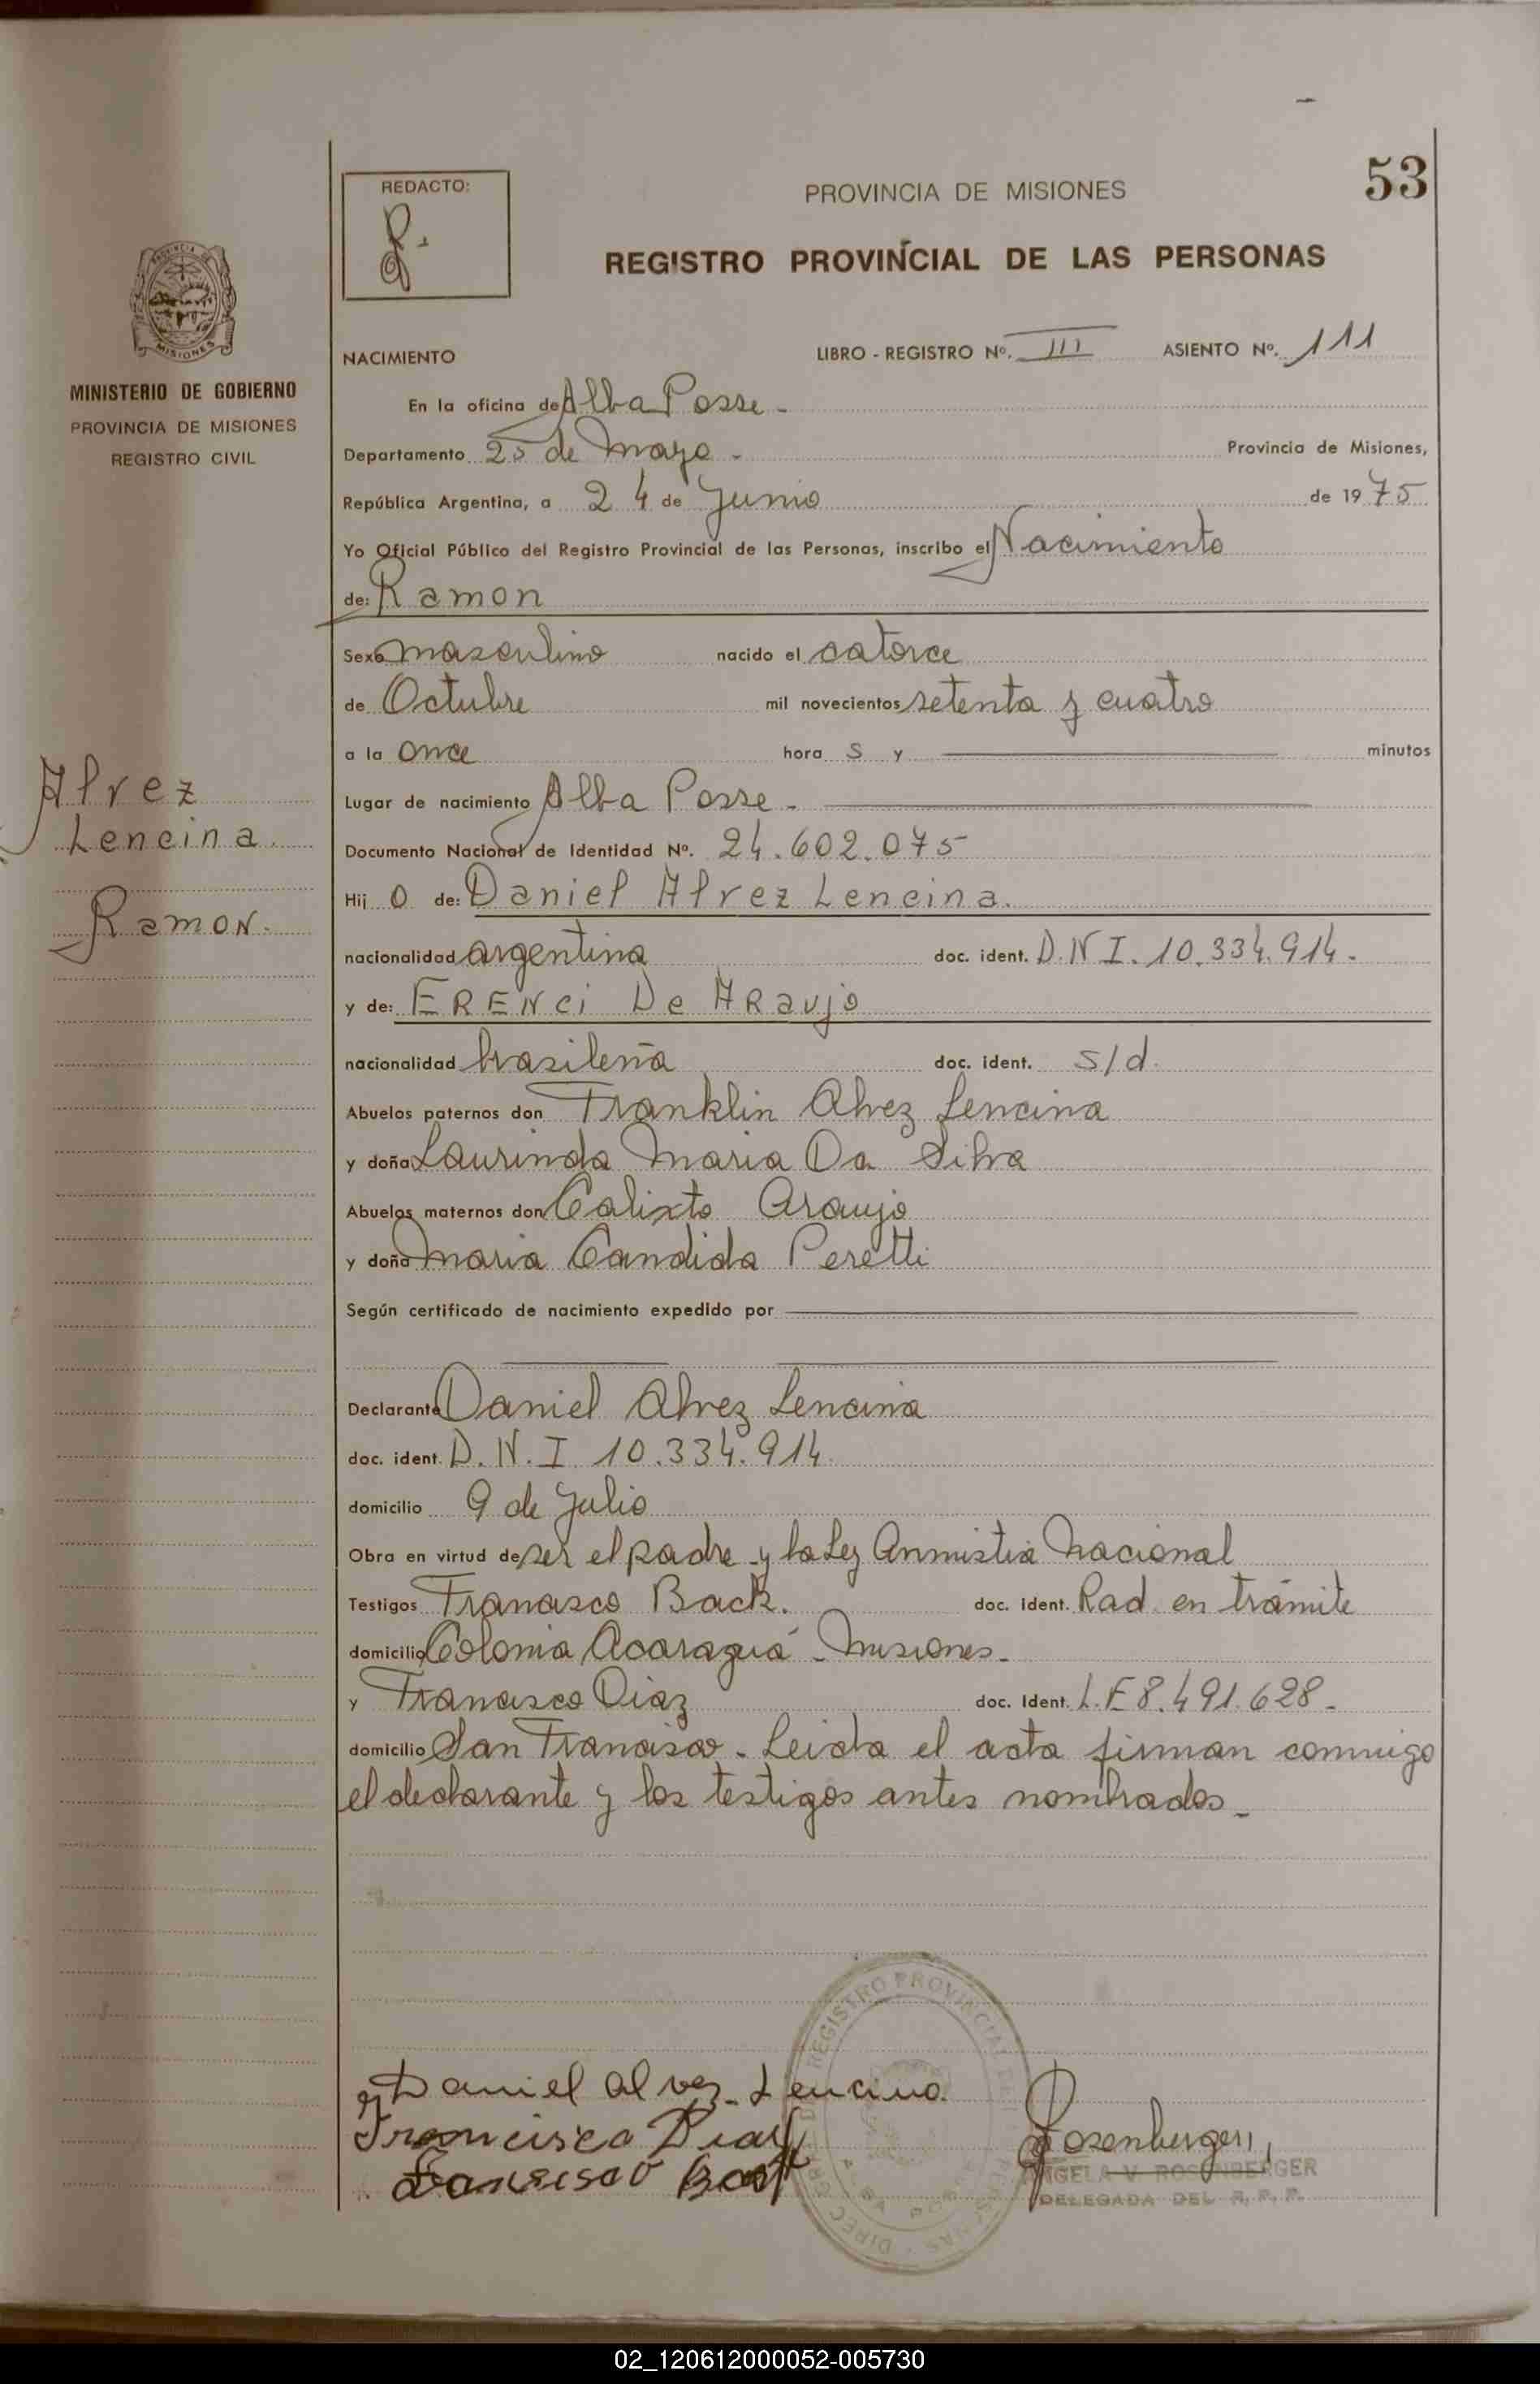 53
REDACTO:
PROVINCIA DE MISIONES
REGISTRO PROVINCIAL DE LAS PERSONAS
MISIONES
MINISTERIO DE GOBIERNO
PROVINCIA DE MISIONES
REGISTRO CIVIL
NACIMIENTO LIBRO - REGISTRO Nº. III ASIENTO Nº. 111
En la oficina de Alba Posse -
Departamento 25 de Mayo - Provincia de Misiones,
República Argentina, a 24 de Junio de 1975
Yo Oficial Público del Registro Provincial de las Personas, inscribo el Nacimiento
de: Ramon
Sexo masculino nacido el catorce
de Octubre mil novecientos setenta y cuatro
a la once hora s y minutos
Alvez
Lencina
Ramon.
Lugar de nacimiento Alba Posse -
Documento Nacional de Identidad Nº. 24.602.075
Hij o de: Daniel Alvez Lencina.
nacionalidad argentina doc. ident. D.N.I. 10.334.914.
y de: ERENCi De ARaujo
nacionalidad brasileña doc. ident. s/d.
Abuelos paternos don Franklin Alvez Lencina
y doña Laurinda Maria Da Silva
Abuelos maternos don Calixto Araujo
y doña Maria Candida Peretti
Según certificado de nacimiento expedido por
Declarante Daniel Alvez Lencina
doc. ident. D.N.I 10.334.914.
domicilio 9 de Julio
Obra en virtud de ser el padre y la Ley Anmistia Nacional
Testigos Francisco Back. doc. ident. Rad. en trámite
domicilio Colonia Acaraguá - Misiones -
y Francisco Diaz doc. Ident. L.E 8.491.628 -
domicilio San Francisco - Leida el acta firman conmigo
el declarante y los testigos antes nombrados -
Daniel alvez Lencina
Francisco Diaz
Fransisco Back
Rosenberger
ANGELA V. ROSENBERGER
DELEGADA DEL R. P. P.
02_120612000052-005730